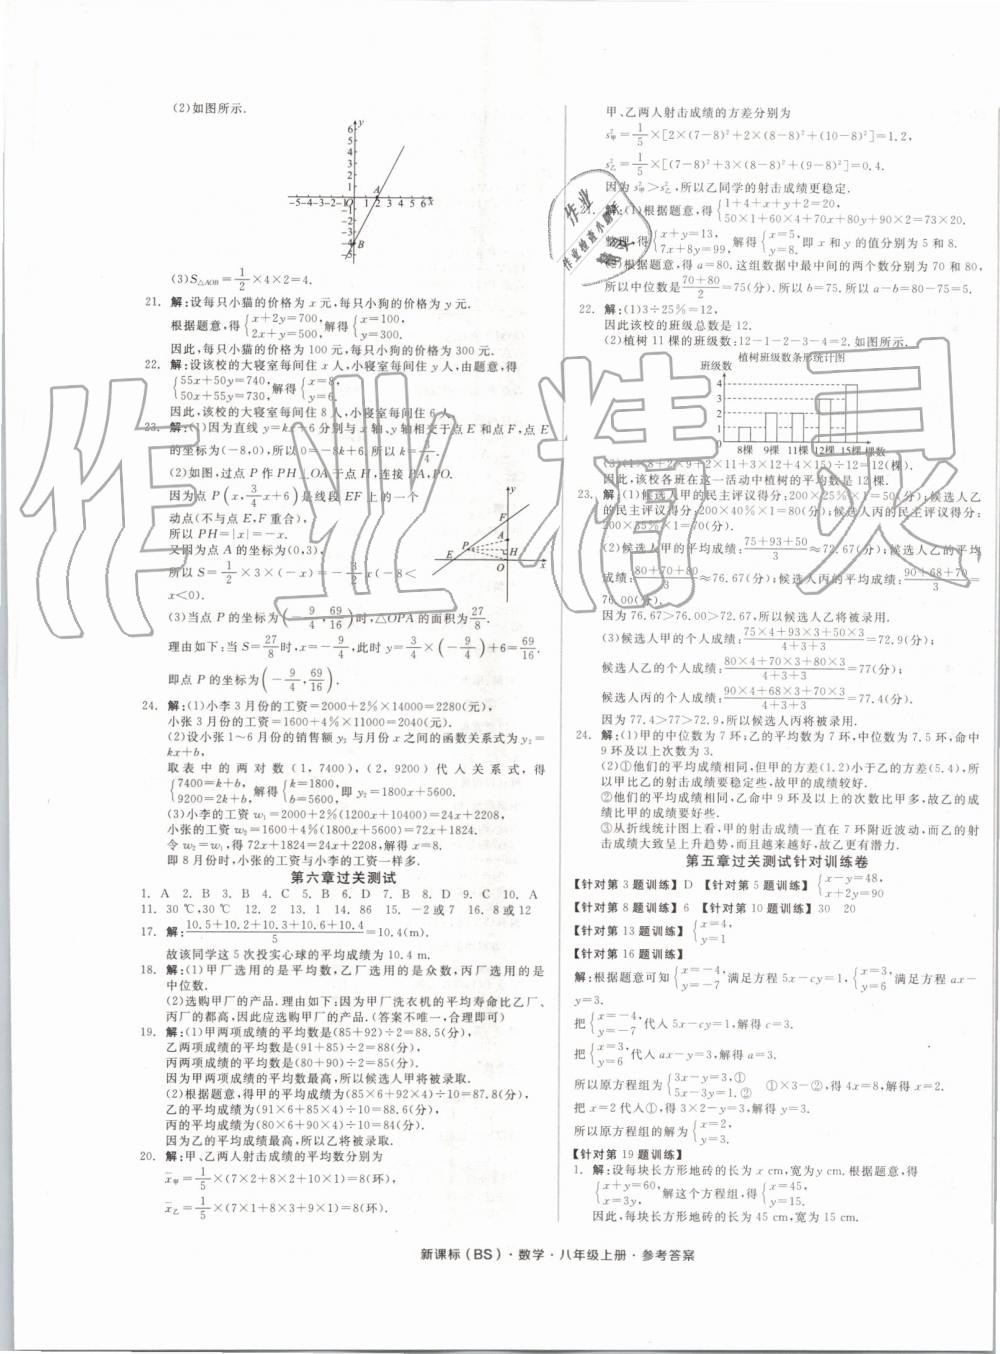 (2)如图所示.
(3)S△AOB=1/2×4×2=4.
21. 解:设每只小猫的价格为 x 元,每只小狗的价格为 y 元.
根据题意,得{x+2y=700, 2x+y=500,解得{x=100, y=300.
因此,每只小猫的价格为 100 元,每只小狗的价格为 300 元.
22. 解:设该校的大寝室每间住 x 人,小寝室每间住 y 人,由题意,得
{55x+50y=740, 50x+55y=730,解得{x=8, y=6.
因此,该校的大寝室每间住 8 人,小寝室每间住 6 人.
23. 解:(1)因为直线 y=kx+6 分别与 x 轴、y 轴相交于点 E 和点 F,点 E
的坐标为(-8,0),所以 0=-8k+6.所以 k=3/4.
(2)如图,过点 P 作 PH⊥OA 于点 H,连接 PA,PO.
因为点 P(x,3/4x+6)是线段 EF 上的一个
动点(不与点 E,F 重合),
所以 PH=|x|=-x.
又因为点 A 的坐标为(0,3),
所以 S=1/2×3×(-x)=-3/2x(-8<
x<0).
(3)当点 P 的坐标为(-9/4,69/16)时,△OPA 的面积为27/8.
理由如下:当 S=27/8时,x=-9/4,此时 y=3/4×(-9/4)+6=69/16.
即点 P 的坐标为(-9/4,69/16).
24. 解:(1)小李 3 月份的工资=2000+2%×14000=2280(元),
小张 3 月份的工资=1600+4%×11000=2040(元).
(2)设小张 1~6 月份的销售额 y₂ 与月份 x 之间的函数关系式为 y₂=
kx+b,
取表中的两对数(1,7400),(2,9200)代入关系式,得
{7400=k+b, 9200=2k+b,解得{k=1800, b=5600,即 y₂=1800x+5600.
(3)小李的工资 w₁=2000+2%(1200x+10400)=24x+2208,
小张的工资 w₂=1600+4%(1800x+5600)=72x+1824.
令 w₂=w₁,得 72x+1824=24x+2208,解得 x=8.
即 8 月份时,小张的工资与小李的工资一样多.
第六章过关测试
1. A 2. B 3. B 4. C 5. B 6. D 7. B 8. D 9. C 10. A
11. 30 ℃,30 ℃ 12. 2 13. 1 14. 86 15. -2 或 7 16. 8 或 12
17. 解:(10.5+10.2+10.3+10.6+10.4)/5=10.4(m).
故该同学这 5 次投实心球的平均成绩为 10.4 m.
18. 解:(1)甲厂选用的是平均数,乙厂选用的是众数,丙厂选用的是
中位数.
(2)选购甲厂的产品.理由如下:因为甲厂洗衣机的平均寿命比乙厂、
丙厂的都高,因此应选购甲厂的产品.(答案不唯一,合理即可)
19. 解:(1)甲两项成绩的平均数是(85+92)÷2=88.5(分),
乙两项成绩的平均数是(91+85)÷2=88(分),
丙两项成绩的平均数是(80+90)÷2=85(分).
因为甲两项成绩的平均数最高,所以候选人甲将被录取.
(2)根据题意,得甲的平均成绩为(85×6+92×4)÷10=87.8(分),
乙的平均成绩为(91×6+85×4)÷10=88.6(分),
丙的平均成绩为(80×6+90×4)÷10=84(分).
因为乙的平均成绩最高,所以乙将被录取.
20. 解:甲、乙两人射击成绩的平均数分别为
x̄甲=1/5×(7×2+8×2+10×1)=8(环),
x̄乙=1/5×(7×1+8×3+9×1)=8(环).
甲、乙两人射击成绩的方差分别为
s²甲=1/5×[2×(7-8)²+2×(8-8)²+(10-8)²]=1.2,
s²乙=1/5×[(7-8)²+3×(8-8)²+(9-8)²]=0.4.
因为 s²甲>s²乙,所以乙同学的射击成绩更稳定.
21. 解:(1)根据题意,得{1+4+x+y+2=20, 50×1+60×4+70x+80y+90×2=73×20.
整理,得{x+y=13, 7x+8y=99,解得{x=5, y=8.即 x 和 y 的值分别为 5 和 8.
(2)根据题意,得 a=80.这组数据中最中间的两个数分别为 70 和 80,
所以中位数是(70+80)/2=75(分).所以 b=75.所以 a-b=80-75=5.
22. 解:(1)3÷25%=12,
因此该校的班级总数是 12.
(2)植树 11 棵的班级数:12-1-2-3-4=2.如图所示.
植树班级数条形统计图
班级数
4
3
2
1
0 8棵 9棵 11棵 12棵 15棵 棵数
(3)(1×8+2×9+2×11+3×12+4×15)÷12=12(棵).
因此,该校各班在这一活动中植树的平均数是 12 棵.
23. 解:(1)候选人甲的民主评议得分:200×25%×1=50(分);候选人乙
的民主评议得分:200×40%×1=80(分);候选人丙的民主评议得分:
200×35%×1=70(分).
(2)候选人甲的平均成绩:(75+93+50)/3≈72.67(分);候选人乙的平均
成绩:(80+70+80)/3≈76.67(分);候选人丙的平均成绩:(90+68+70)/3=
76.00(分).
因为 76.67>76.00>72.67,所以候选人乙将被录用.
(3)候选人甲的个人成绩:(75×4+93×3+50×3)/(4+3+3)=72.9(分);
候选人乙的个人成绩:(80×4+70×3+80×3)/(4+3+3)=77(分);
候选人丙的个人成绩:(90×4+68×3+70×3)/(4+3+3)=77.4(分).
因为 77.4>77>72.9,所以候选人丙将被录用.
24. 解:(1)甲的中位数为 7 环;乙的平均数为 7 环,中位数为 7.5 环,命中
9 环及以上次数为 3.
(2)①他们的平均成绩相同,但甲的方差(1.2)小于乙的方差(5.4),所
以甲比乙的射击成绩要稳定些,故甲的成绩较好.
②他们的平均成绩相同,乙命中 9 环及以上的次数比甲多,故乙的成
绩比甲的成绩要好些.
③从折线统计图上看,甲的射击成绩一直在 7 环附近波动,而乙的射
击成绩大致呈上升趋势,而且越来越好,故乙更有潜力.
第五章过关测试针对训练卷
【针对第 3 题训练】D 【针对第 5 题训练】{x-y=48, x+2y=90
【针对第 8 题训练】6 【针对第 10 题训练】30 20
【针对第 13 题训练】{x=4, y=1
【针对第 16 题训练】
解:根据题意可知{x=-4, y=-7满足方程 5x-cy=1,{x=3, y=6满足方程 ax-
y=3.
把{x=-4, y=-7代入 5x-cy=1,解得 c=3.
把{x=3, y=6代入 ax-y=3,解得 a=3.
所以原方程组为{3x-y=3,① 5x-3y=1.② ①×3-②,得 4x=8.解得 x=2.
把 x=2 代入①,得 3×2-y=3,解得 y=3.
所以原方程组的解为{x=2, y=3.
【针对第 19 题训练】
1. 解:设每块长方形地砖的长为 x cm,宽为 y cm.根据题意,得
{x+y=60, x=3y,解这个方程组,得{x=45, y=15.
因此,每块长方形地砖的长为 45 cm,宽为 15 cm.
新课标(BS)·数学·八年级上册·参考答案
作业精灵